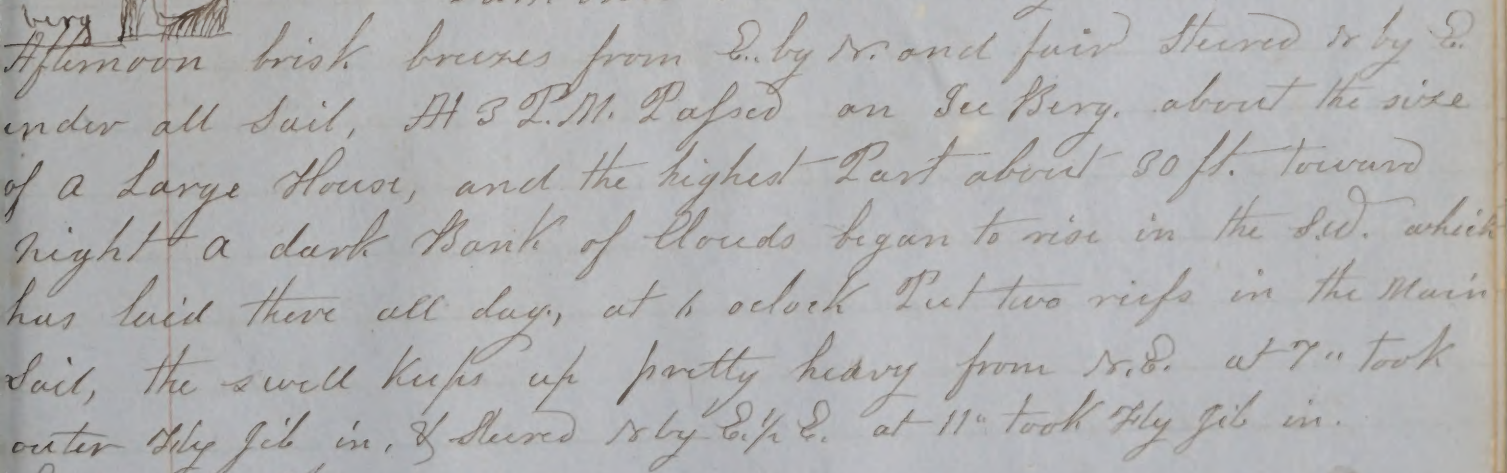 berg
Afternoon brisk breezes from E. by N. and fair Steered N by E.
under all Sail, At 3 P.M. Passed an Ice Berg. about the size
of a Large House, and the highest Part about 30 ft. toward
night a dark Bank of Clouds began to rise in the S.W. which
has laid there all day, at 6 oclock Put two reefs in the Main
Sail, the swell Keeps up pretty heavy from N.E. at 7" took
outer Fly Jib in, & Steered N by E. 1/2 E. at 11" took Fly Jib in.